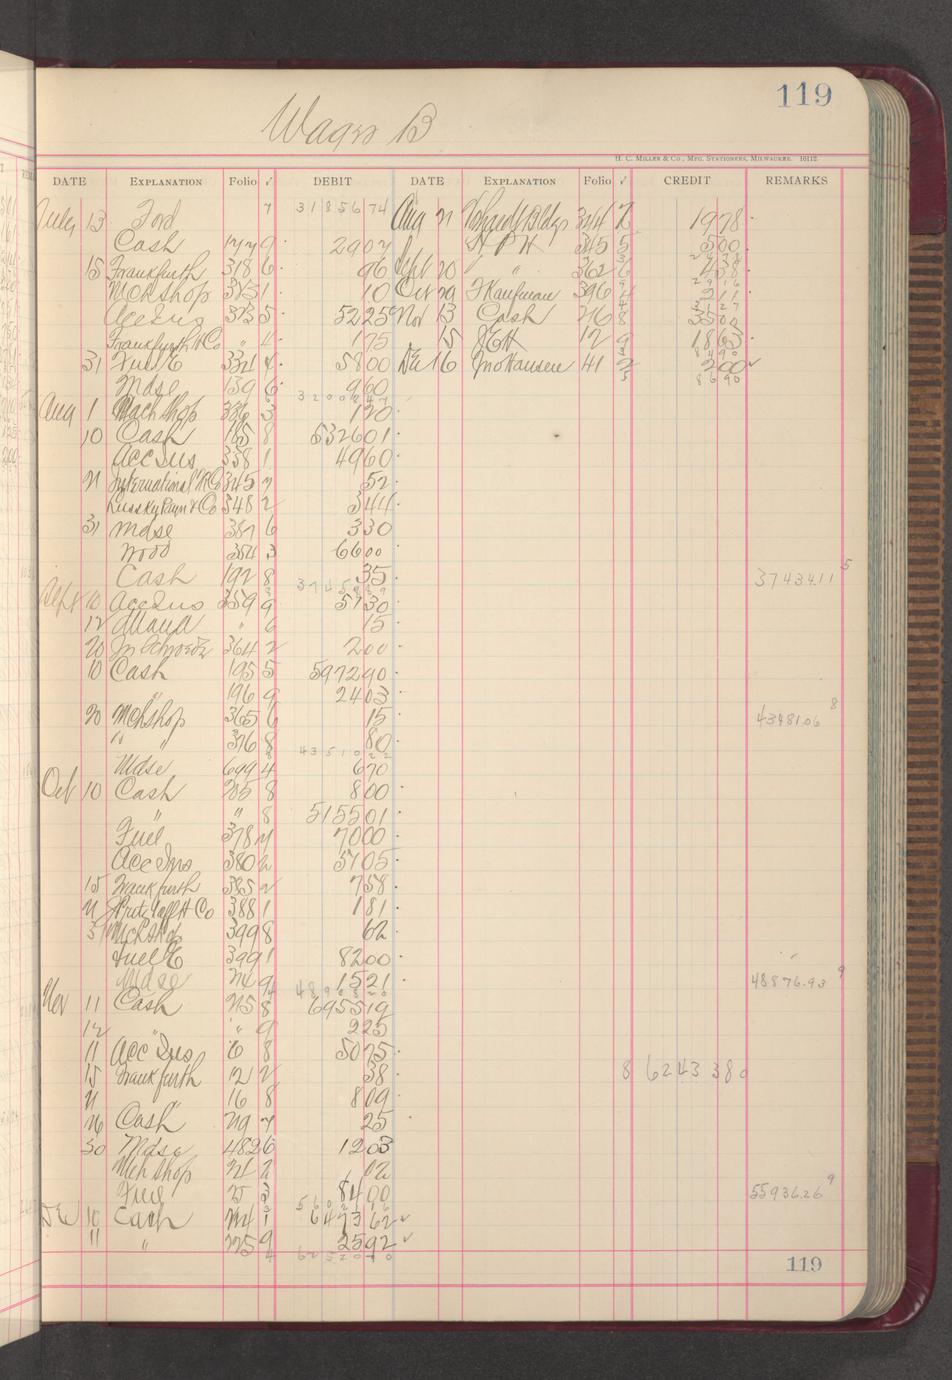 119
Wages B
H. C. Miller & Co., Mfg. Stationers, Milwaukee. 16112
DATE EXPLANATION Folio ✓ DEBIT DATE EXPLANATION Folio ✓ CREDIT REMARKS
July 13 Ford 7 31856 74 Aug 21 344 7 1978
Cash 177 9 2907 345 5 500
15 Frankfurth 318 6 96 Sept 20 " " 362 6 438
Mch Shop 353 1 10 Oct 29 F Kaufman 396 4 211
Acc Ins 373 5 5225 Nov 13 Cash 216 8 3500
Frankfurth H Co " 4 175 15 JEH 12 9 1863
31 Fuel E 332 4 5800 Dec 16 Jno Hansen 41 2 200 ✓
Mdse 139 6 960
Aug 1 Mach Shop 336 3 120
10 Cash 185 8 532601
Acc Ins 338 1 4960
21 International H Co 345 7 52
Paper & Co 348 2 344
31 Mdse 387 6 330
Wood 354 3 6600
Cash 192 8 35 37434.11 5
Sept 10 Acc Ins 359 9 5730
12 " 6 15
20 364 2 200
10 Cash 195 5 597290
" 196 9 2403
20 Mch Shop 365 6 15 43481.06 8
" " 376 8 80
Mdse 699 4 670
Oct 10 Cash 205 8 800
" " 8 515501
Fuel 378 7000
Acc Ins 380 2 5705
15 Frankfurth 385 2 758
21 H Co 388 1 181
31 Mch Shop 399 8 62
Fuel E 399 1 8200
Mdse 1521 48876.93 9
Nov 11 Cash 215 8 695519
12 " " 9 225
11 Acc Ins 6 8 5075
15 Frankfurth 12 2 38 8 62433 80
21 " 16 8 809
26 Cash 219 7 25
30 Mdse 482 6 1203
Mch Shop 24 2 02
Fuel 25 3 8400 55936.26 9
Dec 10 Cash 224 1 647362 ✓
11 " 225 9 2592 ✓
119